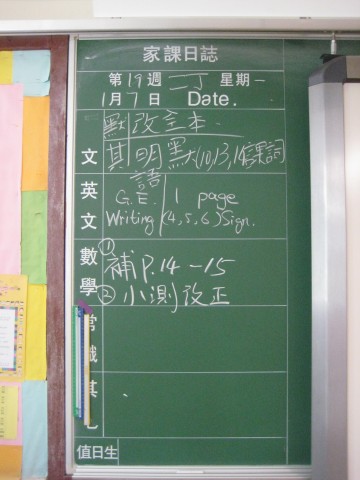 家課日誌
第19週 二丁 星期一
1月7日 Date.
默 改全本
文 其 明默大(10,13,14 課詞語
英文 G.E. 1 page
Writing (4,5,6) Sign.
數學 ① 補P.14-15
② 小測改正
常識
其
值日生